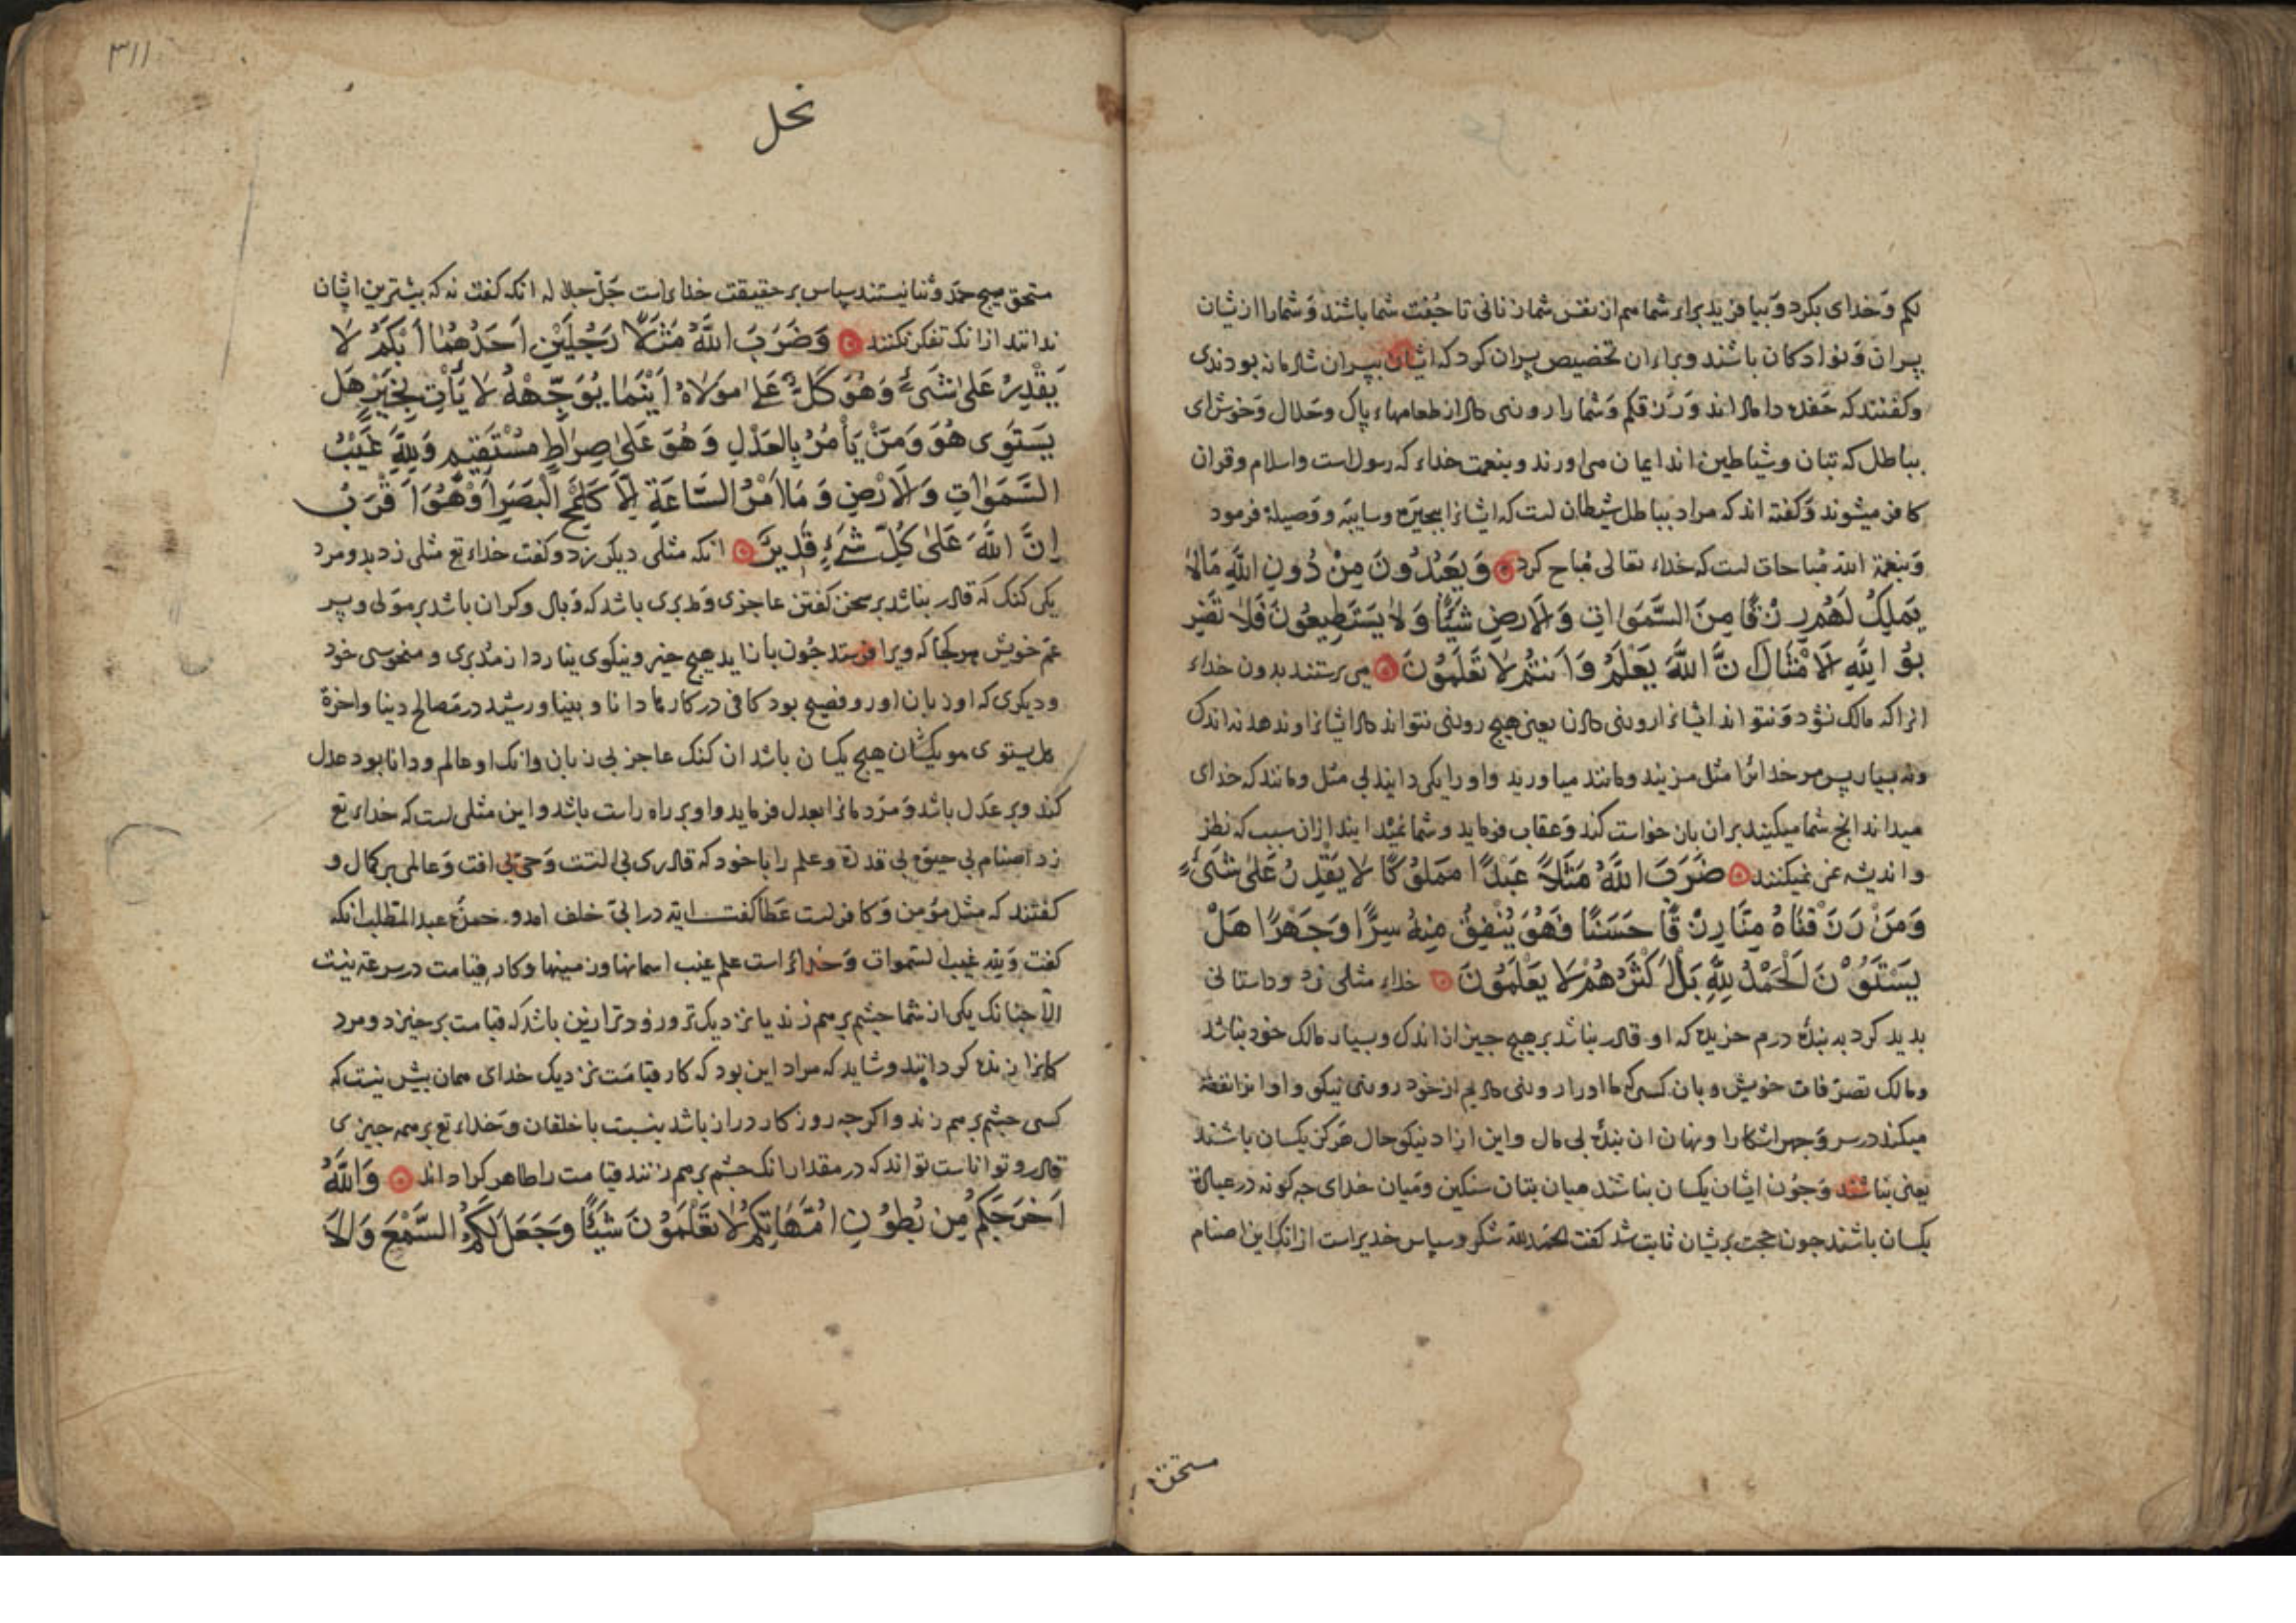 لکم وَخدای بکرد وَبیافرید برای شما هم از نفس شما زنانی تا جُفت شما باشند وَشما را از ایشان
پسران وَنوادکان باشند وبرای ان تخصیص پسران کرد که ایشان بپسران شادمانه بودندی
وکفتند که حَفده دامادانند وَرَزقکم وَشما را روزی داد از طعامهاء پاک وحَلال وَخوش ای
بباطل که بتان وشیاطین اند ایمان می اورند وبنعمت خداء که رسول است واسلام وقران
کافر میشوند وَکفته اند که مراد بباطل شیطان است که ایشانرا ببحیَره وسایبَه ووَصیلة فرمود
وَبنعمة الله مُباحات است که خداء تعالی مُباح کرد وَيَعْبُدُونَ مِنْ دُونِ اللَّهِ مَالَا
يَمْلِكُ لَهُمْ رِزْقًا مِنَ السَّمَوَاتِ وَالْاَرْضِ شَيْئًا وَلَا يَسْتَطِيعُونَ فَلَا تَضْرِ
بُوا لِلَّهِ الْاَمْثَالَ اِنَّ اللَّهَ يَعْلَمُ وَاَنْتُمْ لَا تَعْلَمُونَ می پرستند بدون خداء
انرا که مالک نشود وَنتواند ایشانرا روزی دادن یعنی هیچ روزی نتواند داد ایشانرا وندهد نه اندک
ونه بسیار پس مر خدائرا مثل مزنید ومانند میاورید واو را یکی دانید بی مثل ومانند که خدای
میداند انچ شما میکنید بران بازخواست کند وَعقاب فرماید وشما نمیدانید ازان سبب که نظر
واندیشه نمی کنید ضَرَبَ اللَّهُ مَثَلًا عَبْدًا مَمْلُوكًا لَا يَقْدِرُ عَلَى شَىْءٍ
وَمَنْ رَزَقْنَاهُ مِنَّا رِزْقًا حَسَنًا فَهُوَ يُنْفِقُ مِنْهُ سِرًّا وَجَهْرًا هَلْ
يَسْتَوُونَ الْحَمْدُ لِلَّهِ بَلْ اَكْثَرُهُمْ لَا يَعْلَمُونَ خداء مثلی زد وداستانی
بدید کرد به بندهٔ درم خریده که او قادر نباشد بر هیچ چیز از اندک وبسیار مالک خود نباشد
ومالک تصرّفات خویش وبان کسی که ما او را روزی دادیم از خود روزی نیکو واو ازان نفقة
میکند در سر وَجهر اشکارا ونهان ان بندهٔ بی مال واین ازاد نیکو حال هَرکز یکسان باشند
یعنی نباشند وَچون ایشان یکسان نباشند میان بتان سنکین ومَیان خدای چه کونه در عبادة
یکسان باشند چون حجت بر یشان ثابت شد کفت الحَمْد لله شکر وسپاس خدیراست ازانک این اصنام
مستحق
۳۱۱
نحل
مستحق هیچ حمَد وثنا نیستند سپاس بر حقیقت خداءراست جَلّ جلاله انکه کفت نه که بیشترین ایشان
ندانند ازانک تفکر نکنند وَضَرَبَ اللَّهُ مَثَلًا رَجُلَيْنِ اَحَدُهُمَا اَبْكَمُ لَا
يَقْدِرُ عَلَى شَىْءٍ وَهُوَ كَلٌّ عَلَى مَوْلَاهُ اَيْنَمَا يُوَجِّهْهُ لَا يَأْتِ بِخَيْرٍ هَلْ
يَسْتَوِى هُوَ وَمَنْ يَأْمُرُ بِالْعَدْلِ وَهُوَ عَلَى صِرَاطٍ مُسْتَقِيمٍ وَلِلَّهِ غَيْبُ
السَّمَوَاتِ وَالْاَرْضِ وَمَا اَمْرُ السَّاعَةِ اِلَّا كَلَمْحِ الْبَصَرِ اَوْ هُوَ اَقْرَبُ
اِنَّ اللَّهَ عَلَى كُلِّ شَىْءٍ قَدِيرٌ انکه مثلی دیکر زد وکفت خداء تع مثلی زد بدو مرد
یکی کنک که قادر نباشد بر سخن کفتن عاجزی وَمدبری باشد که وَبال وکران باشد بر مَولی وپسر
عَم خویش هرکجا که ویرا فرستد چون باز اید هیچ خیر ونیکوی نیارد از مُدبری ومنحوسی خود
ودیکری که او زبان اور وفصیح بود کافی در کارها دانا وبینا ورشید در مصالح دنیا واخرة
هل یستوی هو یکسان هیچ یکسان باشد ان کنک عاجز بی زبان وانک او عالم ودانا بود عدل
کند وبر عَدل باشد وَمَردمانرا بعدل فرماید واو بر راه راست باشد واین مثلی است که خداء تع
زد اصنام بی حیوة بی قدرة وعلم را با خود که قادری بی التست وَحیّ بی افت وَعالمی بر کمال و
کفتند که مثل مؤمن وَکافر است عَطا کفت ایة در ابیّ خلف امد وحمزهٔ عبد المطلب انکه
کفت وَلِلّه غیب السّموات وَخداءراست علم غیب اسمانها وزمینها وکار قیامت در سرعة نیست
الّا چنانک یکی از شما چشم بر هم زند یا نزدیک تر وزودتر ازین باشد که قیامت برخیزد ومرد
کانرا زنده کردانند وشاید که مراد این بود که کار قیامَت نزدیک خدای همان بیش نیست که
کسی چشم بر هم زند واکرچه روزکار دراز باشد بنسبت با خلقان وَخداء تع بر همه چیزی
قادر وتوانا ست تواند که در مقدار انک چشم بر هم زنند قیامت را ظاهر کرداند وَاللَّهُ
اَخْرَجَكُمْ مِنْ بُطُونِ اُمَّهَاتِكُمْ لَا تَعْلَمُونَ شَيْئًا وَجَعَلَ لَكُمُ السَّمْعَ وَالْاَ